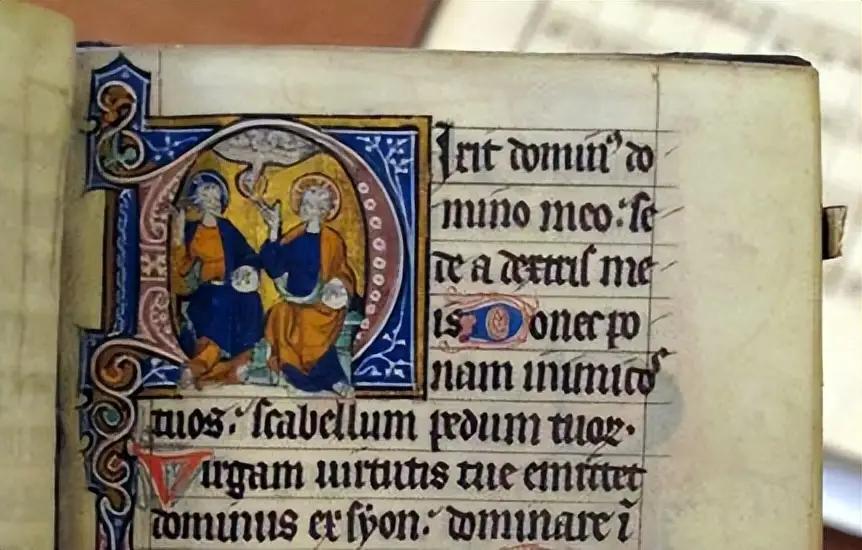 Dixit domin᷒ do
mino meo: se
de a dextris me
is Donec po
nam inimicos
tuos: scabellum pedum tuoꝝ.
Virgam uirtutis tue emittet
dominus ex syon: dominare ī